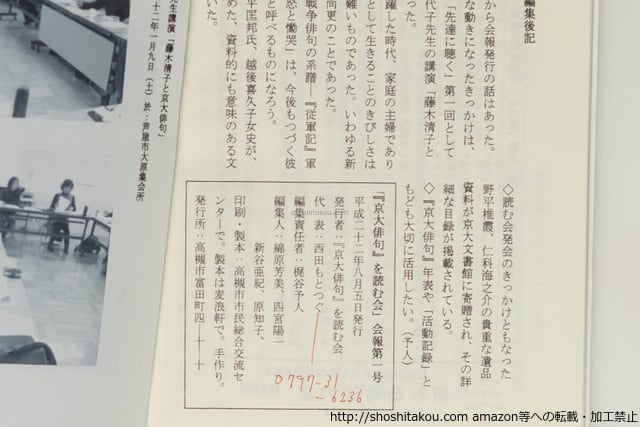 編集後記
から会報発行の話はあった。
な動きになったきっかけは、
「先達に聴く」第一回として
代子先生の講演「藤木清子と
った。
躍した時代、家庭の主婦であり
として生きることのきびしさは
難いものであった。いわゆる新
尚更のことであった。
戦争俳句の系譜―『従軍記』軍
怒と慟哭」は、今後もつづく彼
と呼べるものになろう。
平匡邦氏、越後喜久子女史が、
めた、資料的にも意味のある文
◇読む会発会のきっかけともなった
野平椎霞、仁科海之介の貴重な遺品
資料が京大文書館に寄贈され、その詳
細な目録が掲載されている。
◇『京大俳句』年表や「活動記録」と
もども大切に活用したい。(予人)
「『京大俳句』を読む会」会報第一号
平成二十二年八月五日発行
発行者:『京大俳句』を読む会
代 表:西田もとつぐ
編集責任者:梶谷予人
編集人:綿原芳美、四宮陽一
新谷亜紀、原知子、
印刷・製本:高槻市市民総合交流セ
ンターで。製本は麦浪軒で。手作り。
発行所:高槻市富田町四―十―十
0797-31
-6236
生講演「藤木清子と京大俳句」
十二年一月九日(土)於:芦屋市大原集会所
shoshitakou.com
http://shoshitakou.com amazon等への転載・加工禁止